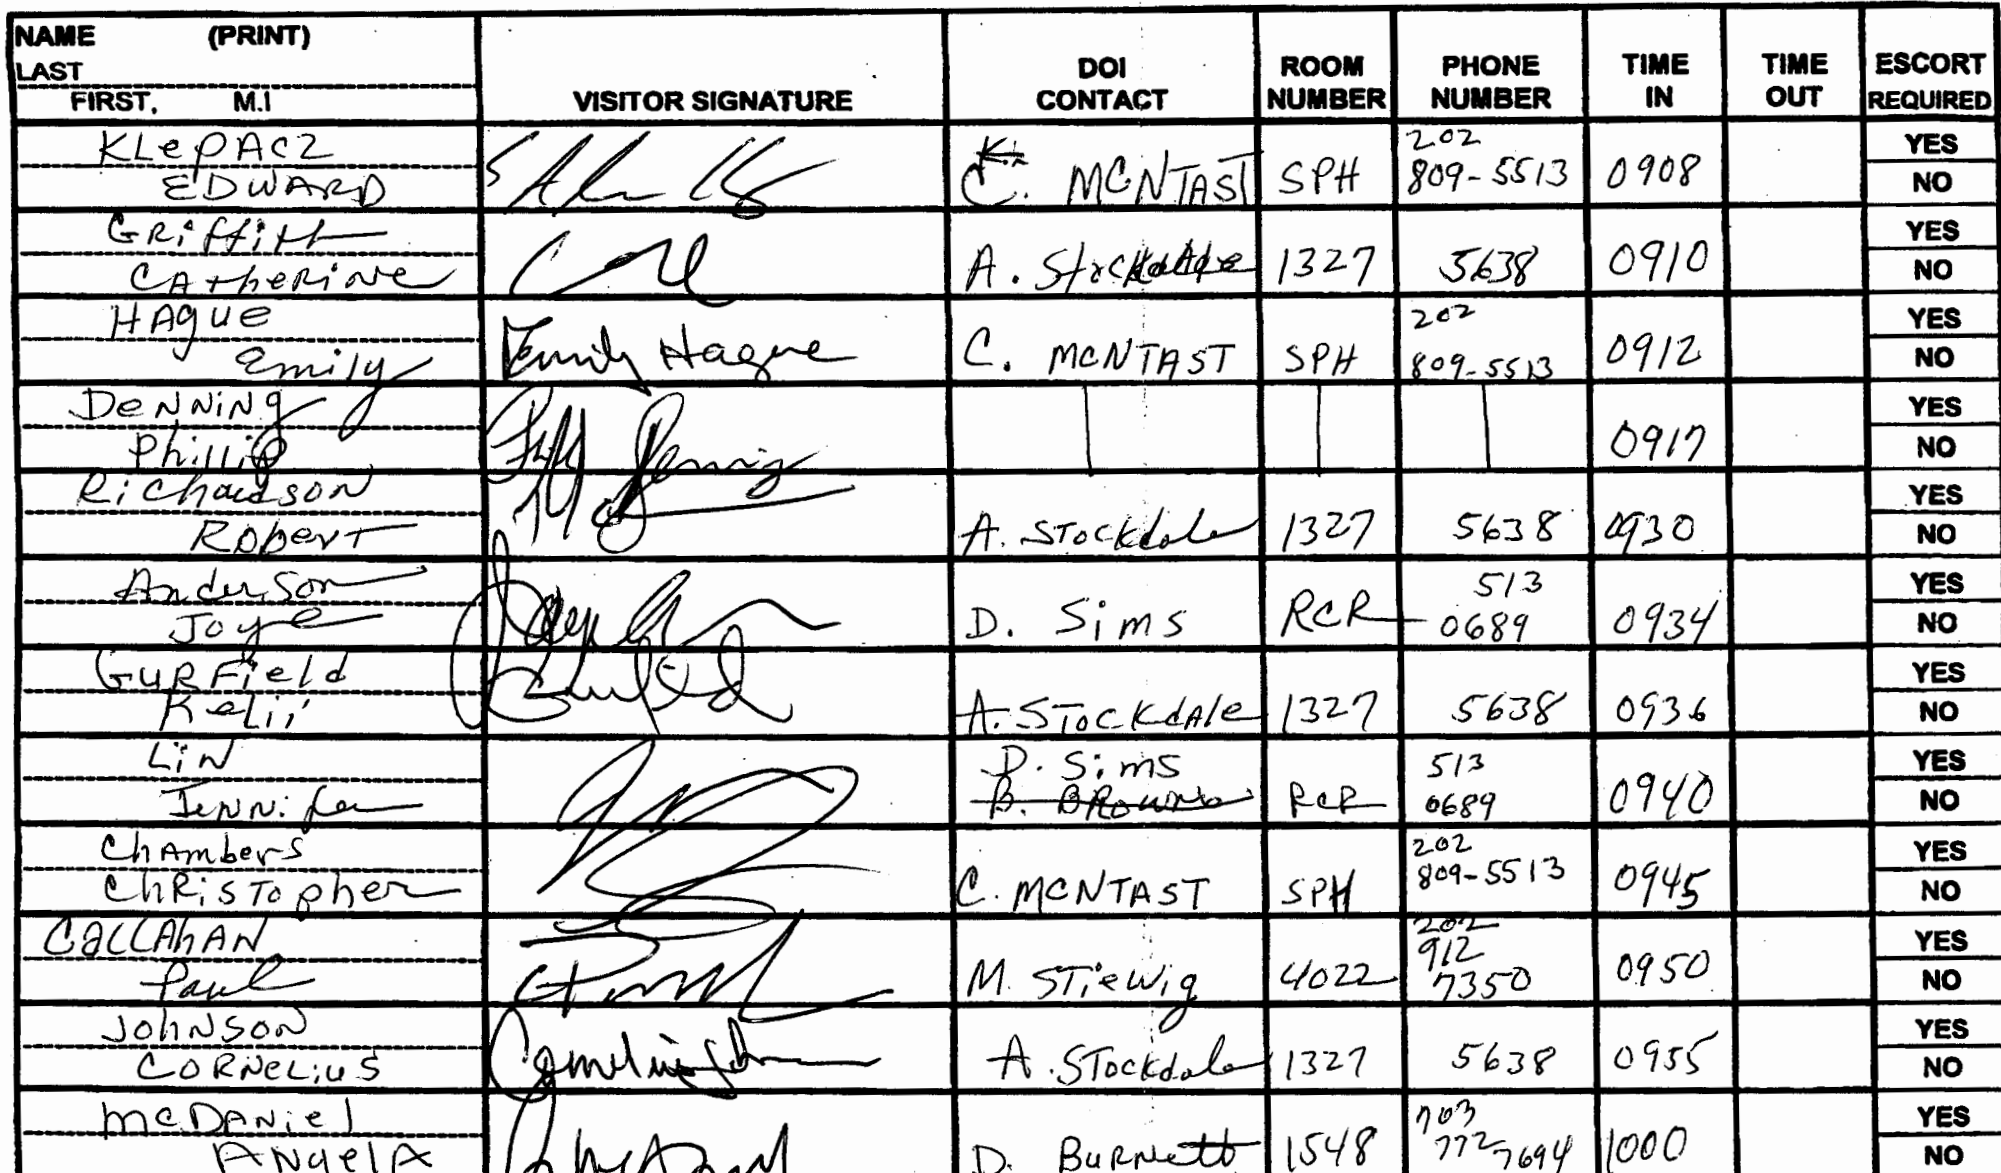 NAME (PRINT)
LAST
FIRST, M.I
VISITOR SIGNATURE
DOI CONTACT
ROOM NUMBER
PHONE NUMBER
TIME IN
TIME OUT
ESCORT REQUIRED
KLePACZ
EDWARD
C. MCNTAST SPH 202 809-5513 0908 YES NO
GRiffith
CAtheRiNe
A. Stockdale 1327 5638 0910 YES NO
HAgue
Emily
Emily Hague C. MCNTAST SPH 202 809-5513 0912 YES NO
DeNNiNg
Phillip
0917 YES NO
Richardson
Robert
A. STockdale 1327 5638 0930 YES NO
Anderson
Joye
D. Sims RCR 513 0689 0934 YES NO
GURField
Kelii
A. STockdAle 1327 5638 0936 YES NO
LiN
JenniFer
D. Sims
B. BROWN RCR 513 0689 0940 YES NO
ChAmbers
ChRiSTopher
C. MCNTAST SPH 202 809-5513 0945 YES NO
CALLAhAN
Paul
M. STieWig 4022 202 912 7350 0950 YES NO
JohNSoN
CoRNeLiuS
A. STockdale 1327 5638 0955 YES NO
McDANiel
ANgelA
D. BuRNett 1548 703 772 7694 1000 YES NO